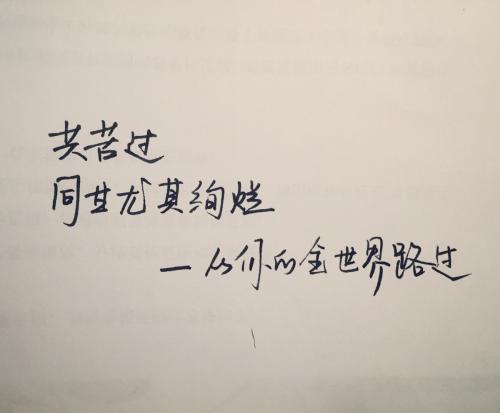 共苦过
同甘尤其绚烂
—从你的全世界路过